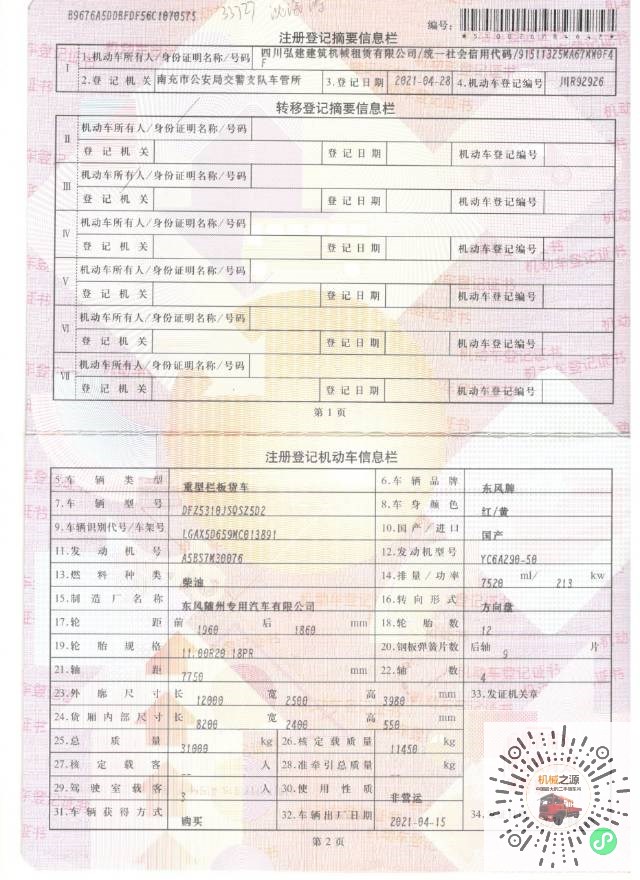 B9676A5DDBFDF56C1070575
33727
编号:
注册登记摘要信息栏
I 1.机动车所有人/身份证明名称/号码 四川弘建建筑机械租赁有限公司/统一社会信用代码/91511325MA67KW0F4F
2.登记机关 南充市公安局交警支队车管所 3.登记日期 2021-04-28 4.机动车登记编号 川R92926
转移登记摘要信息栏
II 机动车所有人/身份证明名称/号码
登记机关 登记日期 机动车登记编号
III 机动车所有人/身份证明名称/号码
登记机关 登记日期 机动车登记编号
IV 机动车所有人/身份证明名称/号码
登记机关 登记日期 机动车登记编号
V 机动车所有人/身份证明名称/号码
登记机关 登记日期 机动车登记编号
VI 机动车所有人/身份证明名称/号码
登记机关 登记日期 机动车登记编号
VII 机动车所有人/身份证明名称/号码
登记机关 登记日期 机动车登记编号
第1页
注册登记机动车信息栏
5.车辆类型 重型栏板货车 6.车辆品牌 东风牌
7.车辆型号 DFZ5310JSQSZ5D2 8.车身颜色 红/黄
9.车辆识别代号/车架号 LGAX5D659MC013891 10.国产/进口 国产
11.发动机号 A5BS7M30076 12.发动机型号 YC6A290-50
13.燃料种类 柴油 14.排量/功率 7520 ml/ 213 kw
15.制造厂名称 东风随州专用汽车有限公司 16.转向形式 方向盘
17.轮距 前 1960 后 1860 mm 18.轮胎数 12
19.轮胎规格 11.00R20 18PR 20.钢板弹簧片数 后轴 9 片
21.轴距 7750 mm 22.轴数 4
23.外廓尺寸 长 12000 宽 2500 高 3980 mm 33.发证机关章
24.货厢内部尺寸 长 8200 宽 2400 高 550 mm
25.总质量 31000 kg 26.核定载质量 11450 kg
27.核定载客 -- 人 28.准牵引总质量 -- kg
29.驾驶室载客 3 人 30.使用性质 非营运
31.车辆获得方式 购买 32.车辆出厂日期 2021-04-15 34.
机械之源
第2页